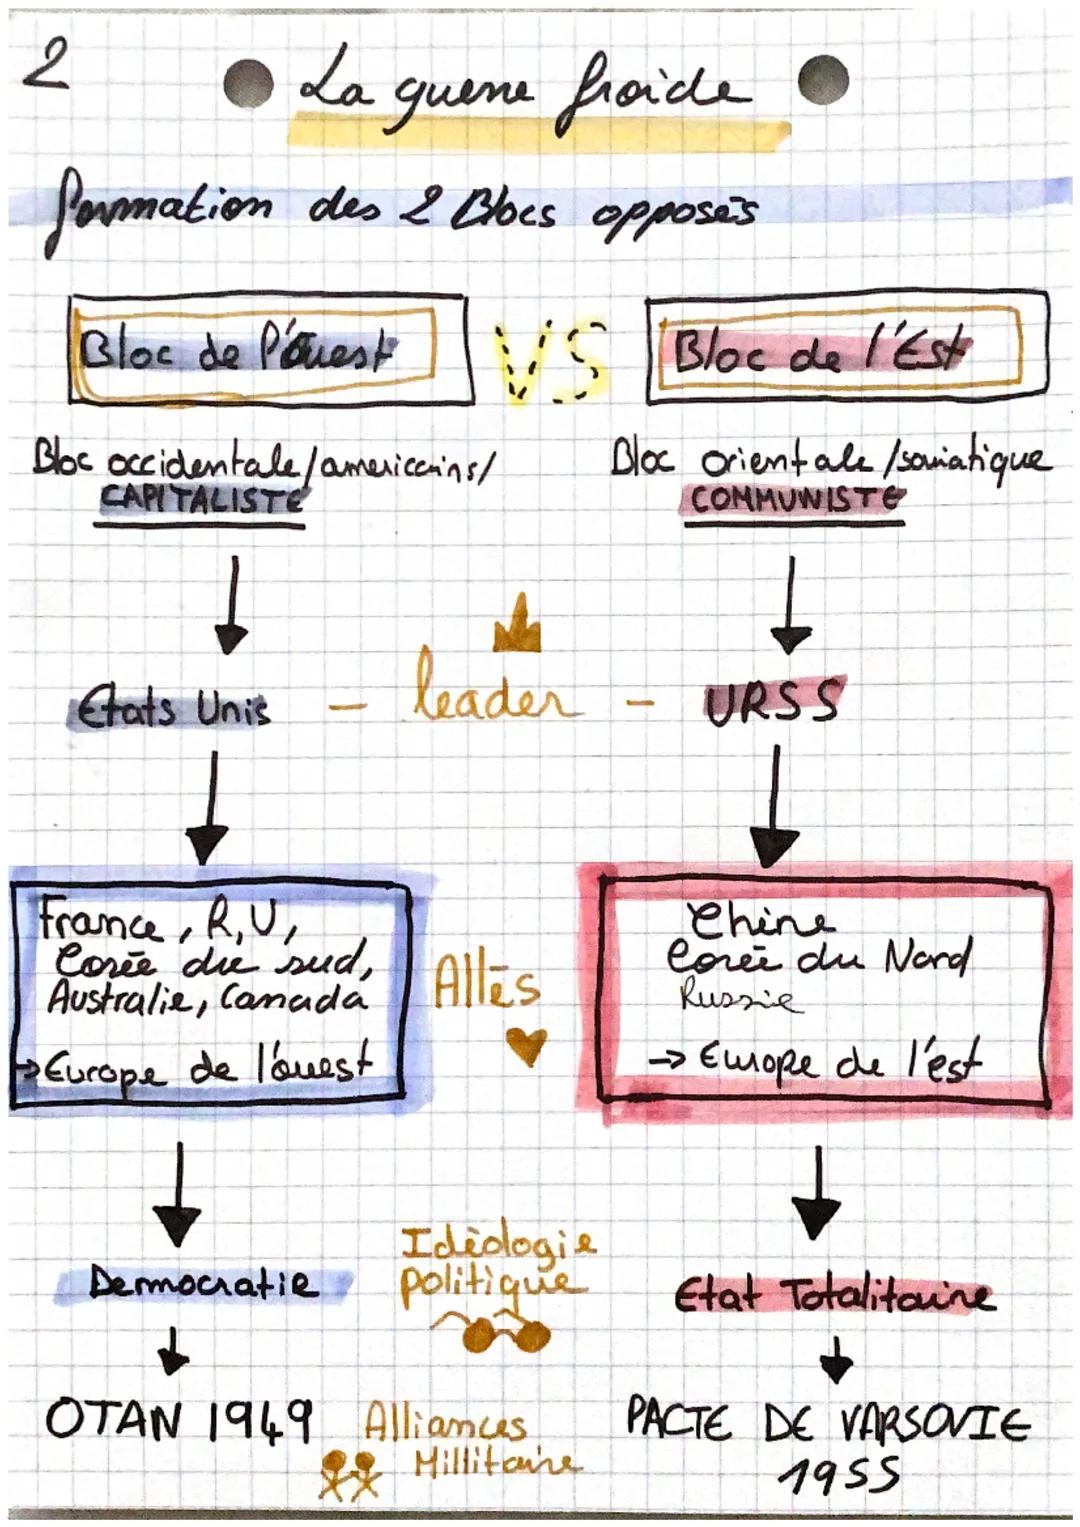 2
La guerre froide
formation des 2 Blocs opposés
Bloc de l'ouest
VS
Bloc de l'Est
Bloc occidentale/americains/
CAPITALISTE
Bloc orientale/soviatique
COMMUNISTE
Etats Unis - leader - URSS
France, R,U,
Corée du sud,
Australie, Canada
→Europe de l'ouest
Allés
Chine
Corée du Nord
Russie
→ Europe de l'est
Democratie
Idéologie
politique
Etat Totalitaire
OTAN 1949
Alliances
Millitaire
PACTE DE VARSOVIE
1955